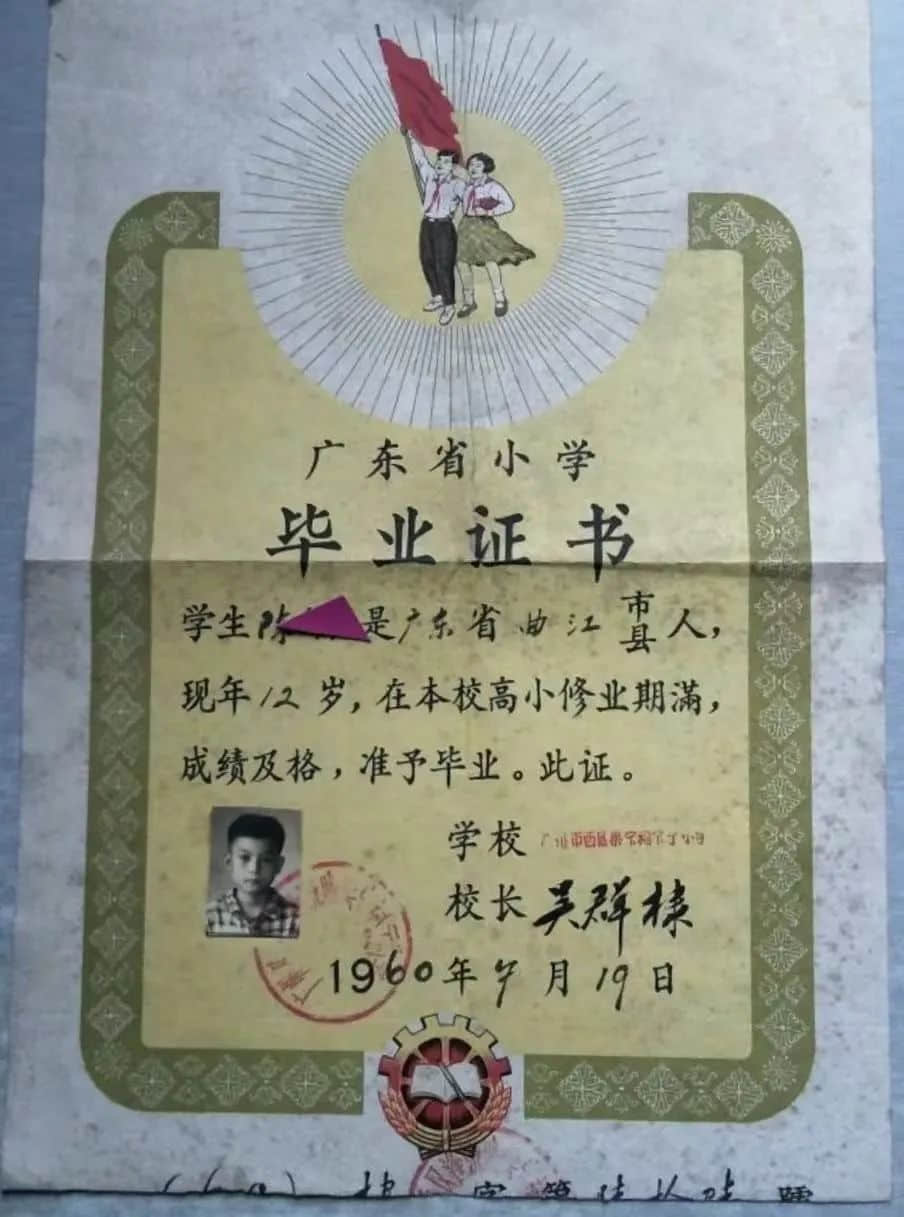 广东省小学
毕业证书
学生陈 是广东省曲江市县人，
现年12岁，在本校高小修业期满，
成绩及格，准予毕业。此证。
学校 广州市西区
校长 吴群
1960年7月19日
字第陆拾陆号